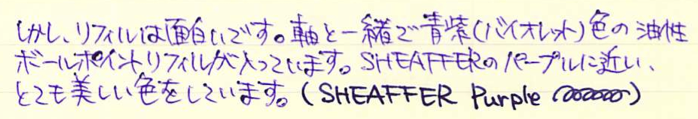 しかし、リフィルは面白いです。軸と一緒で青紫(バイオレット)色の油性
ボールポイントリフィルが入っています。SHEAFFERのパープルに近い、
とても美しい色をしています。(SHEAFFER Purple)